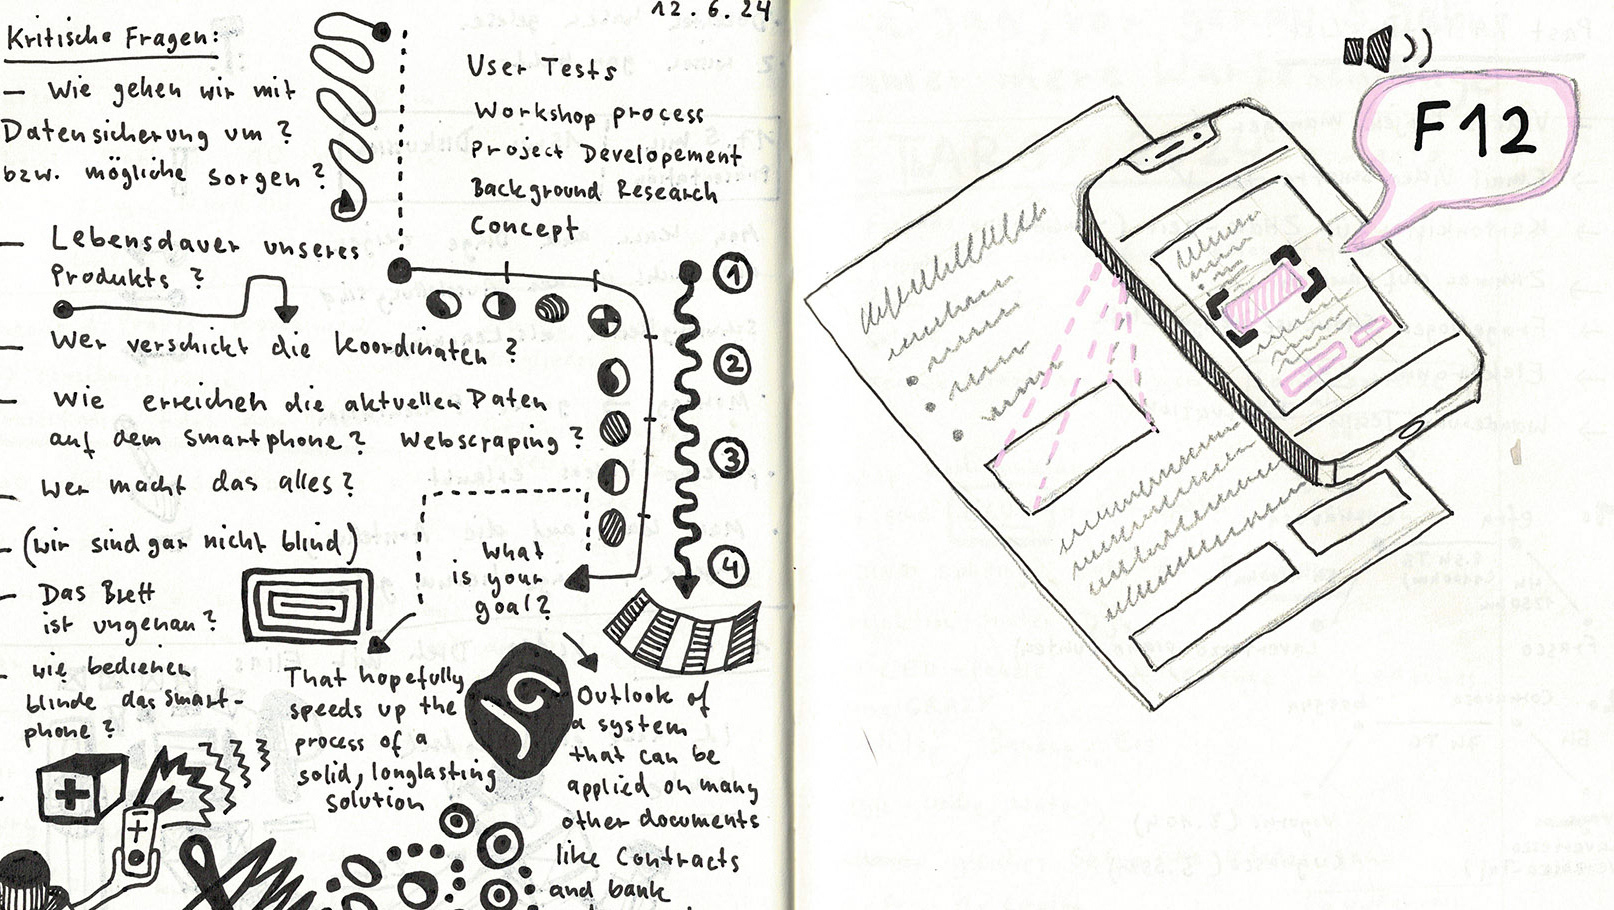 12.6.24
Kritische Fragen:
– Wie gehen wir mit
Datensicherung um?
bzw. mögliche sorgen?
– Lebensdauer unseres
Produkts?
– Wer verschickt die Koordinaten?
– Wie erreichen die aktuellen Daten
auf dem Smartphone? Webscraping?
– Wer macht das alles?
– (Wir sind gar nicht blind)
– Das Brett
ist ungenau?
– wie bedienen
blinde das Smart-
phone?
User Tests
Workshop process
Project Developement
Background Research
Concept
1
2
3
4
What
is your
goal?
That hopefully
speeds up the
process of a
solid, longlasting
solution
Outlook of
a system
that can be
applied on many
other documents
like Contracts
and bank
F12